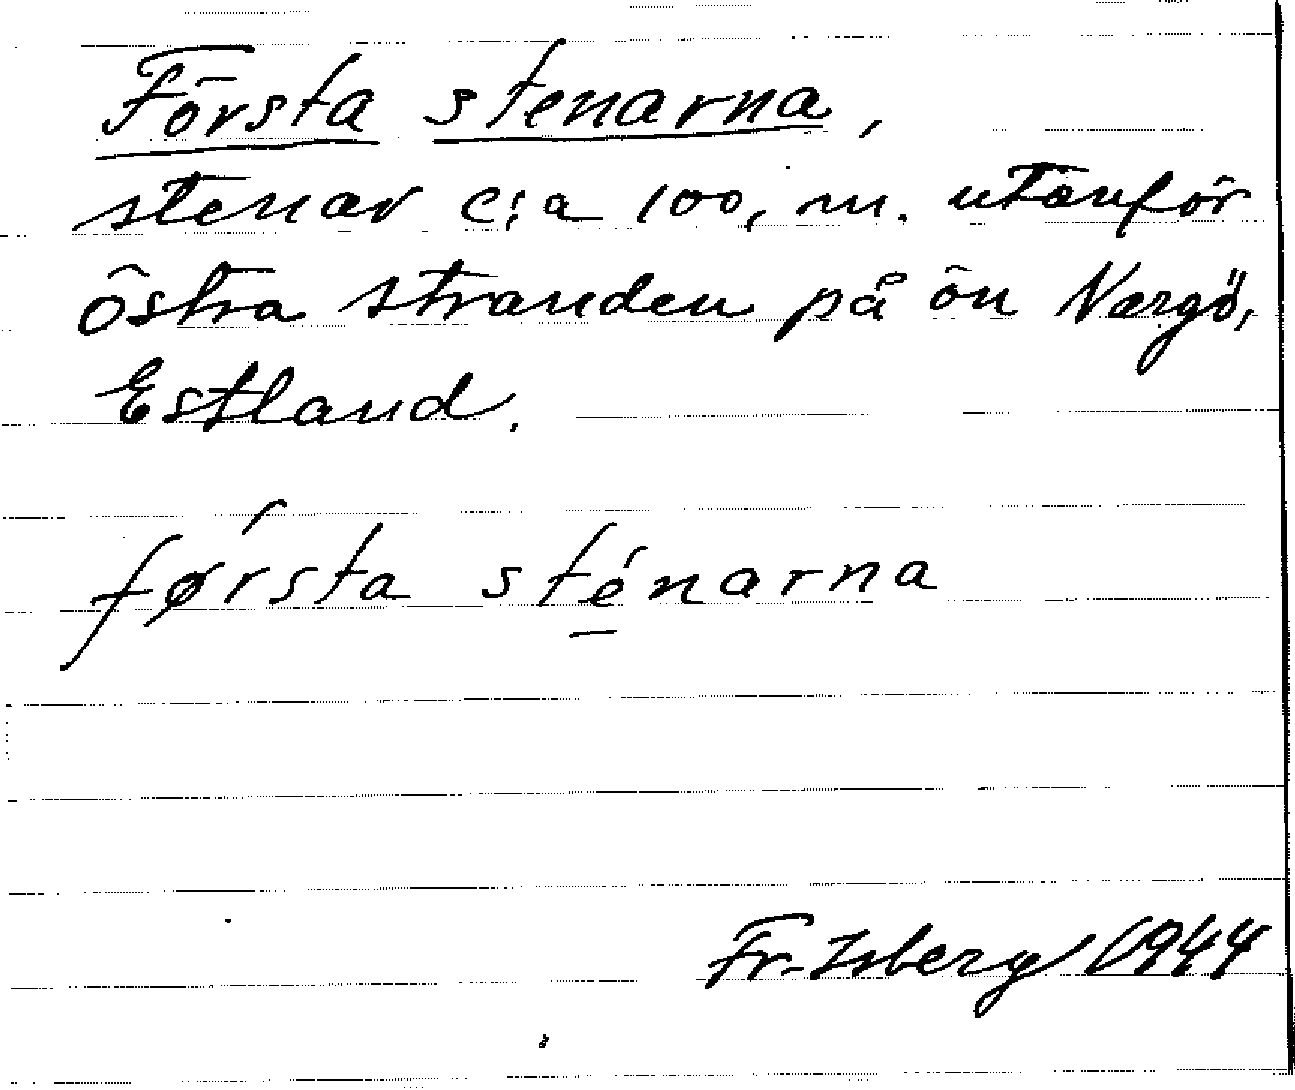 Första stenarna,
stenar c:a 100, m. utanför
östra stranden på ön Nargö,
Estland.
første sténarna
Fr. Isberg 1944